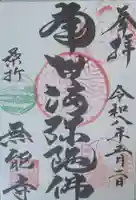 奉拝
令和八年五月二日
南無阿弥陀佛
桑折
無能寺